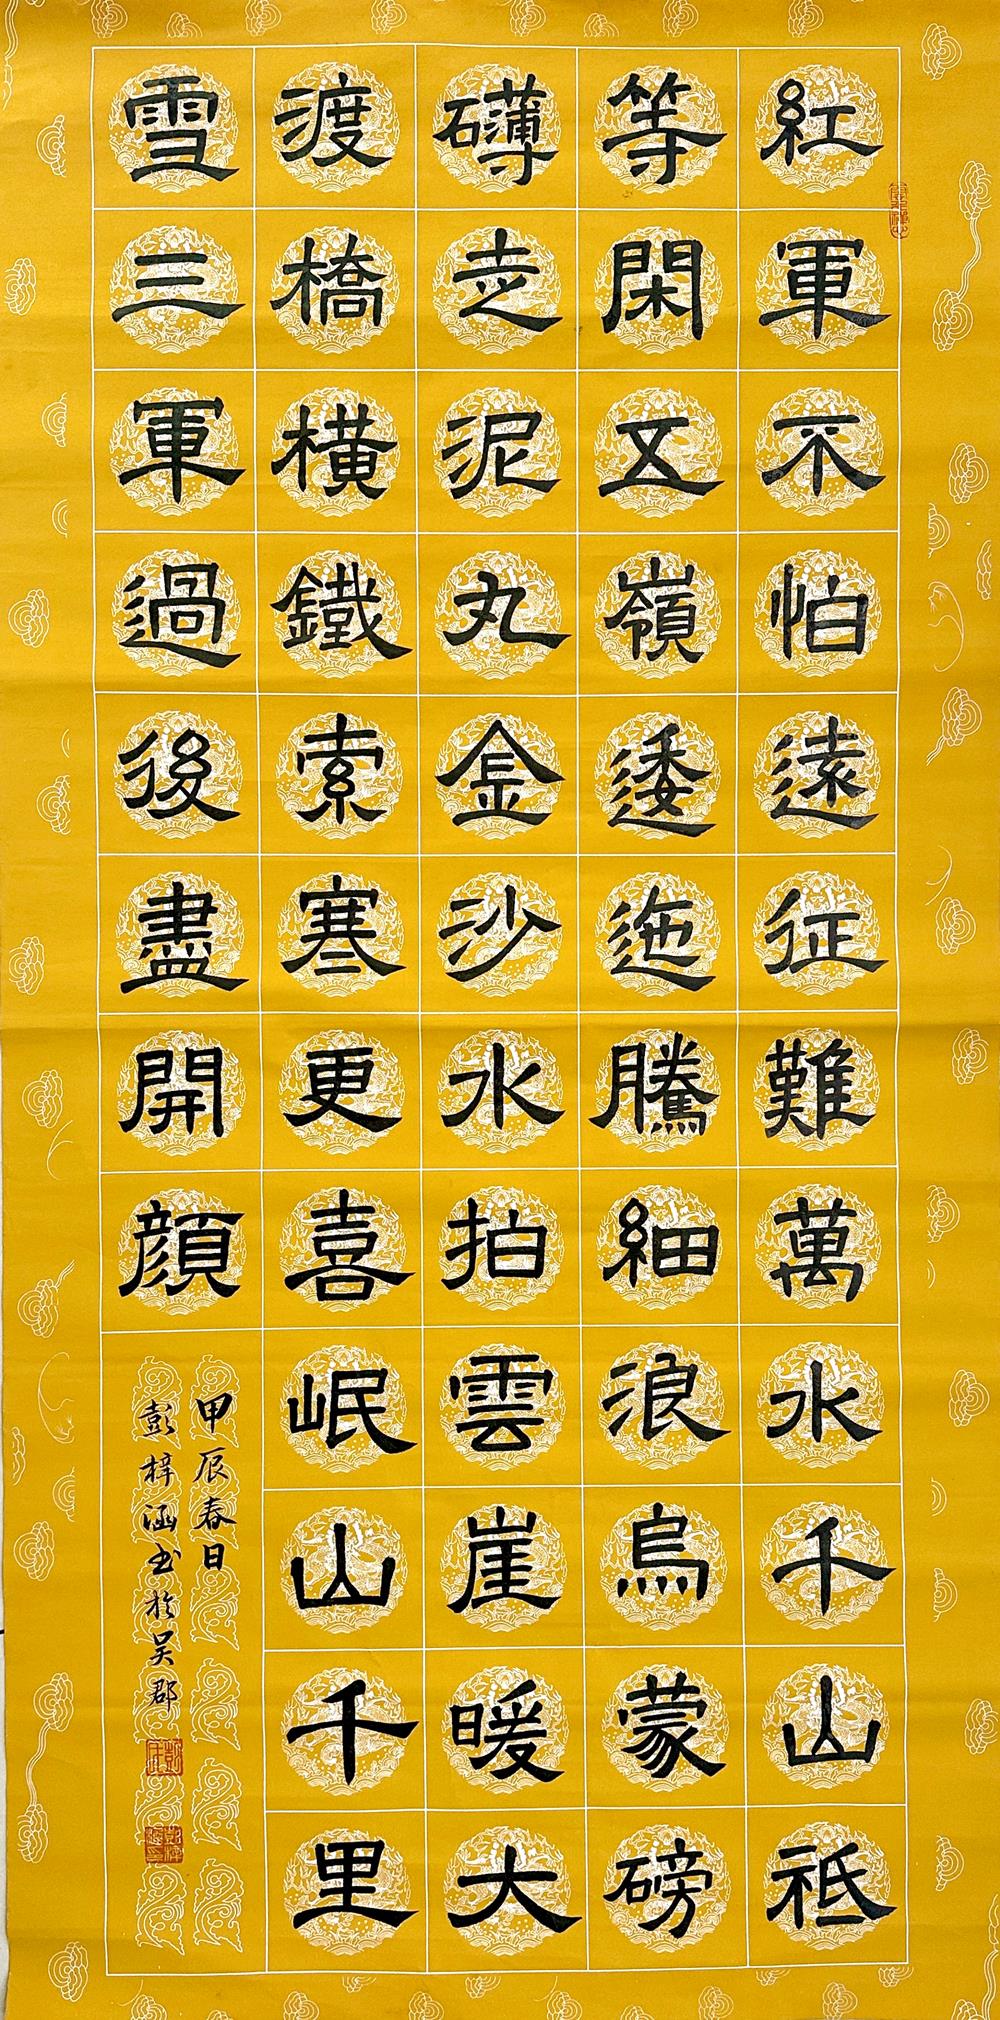 紅軍不怕遠征難萬水千山祗
等閑五嶺逶迤騰細浪烏蒙磅
礴走泥丸金沙水拍雲崖暖大
渡橋橫鐵索寒更喜岷山千里
雪三軍過後盡開顏
甲辰春日
彭梓涵书於吴郡